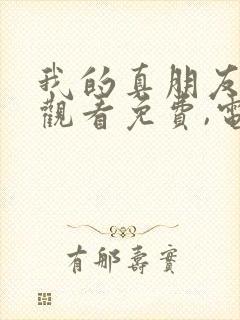 我的真朋友
觀看免費,電
有那壽實